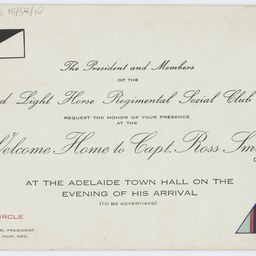 E 15/34/10
The President and Members
OF THE
d Light Horse Regimental Social Club
REQUEST THE HONOR OF YOUR PRESENCE
AT THE
Welcome Home to Capt. Ross Sm
AT THE ADELAIDE TOWN HALL ON THE
EVENING OF HIS ARRIVAL
(TO BE ADVERTISED)
IRCLE
M, PRESIDENT
HON. SEC.